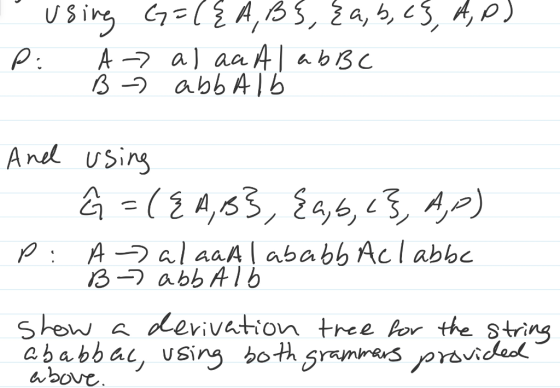 using G=({A,B}, {a,b,c}, A,P)
P: A → a| aaA| abBc
B → abbA|b
And using
Ĝ = ({A,B}, {a,b,c}, A,P)
P: A → a|aaA|ababbAc|abbc
B → abbA|b
Show a derivation tree for the string
ababbac, using both grammars provided
above.